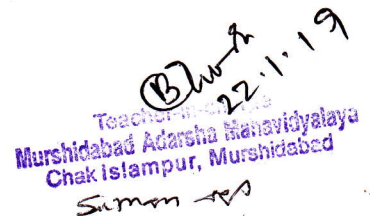 22.1.19
Teacher-in-charge
Murshidabad Adarsha Mahavidyalaya
Chak Islampur, Murshidabad
Suman